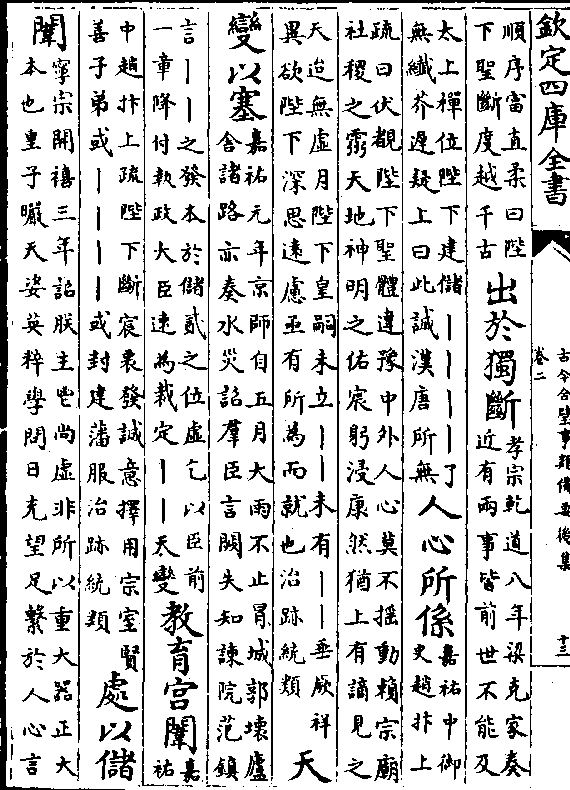 欽定四庫全書
古今合璧事類備要後集
卷二
十三
順序富直柔曰陛
下聖斷度越千古
出於獨斷
孝宗乾道八年梁克家奏
近有兩事皆前世不能及
太上禪位陛下建儲丨丨丨丨了
無纖芥遲疑上曰此誠漢唐所無
人心所係
嘉祐中御
史趙抃上
疏曰伏覩陛下聖體違豫中外人心莫不揺動賴宗廟
社稷之靈天地神明之佑宸躬浸康然猶上有謫見之
天迨無虛月陛下皇嗣未立丨丨未有丨丨垂厥祥
異欲陛下深思遠慮亟有所為而就也治跡統類
天
變以塞
嘉祐元年京師自五月大雨不止冐城郭壊廬
舍諸路亦奏水災詔羣臣言闕失知諫院范鎮
言丨丨之發本於儲貳之位虛乞以臣前
一章降付執政大臣速為裁定丨丨天變
教育宫闈
嘉
祐
中趙抃上疏陛下斷宸衷發誠意擇用宗室賢
善子弟或丨丨丨丨或封建藩服治跡統類
處以儲
闈
寧宗開禧三年詔朕主鬯尚虛非所以重大器正大
本也皇子曮天姿英粹學問日充望足繫於人心言